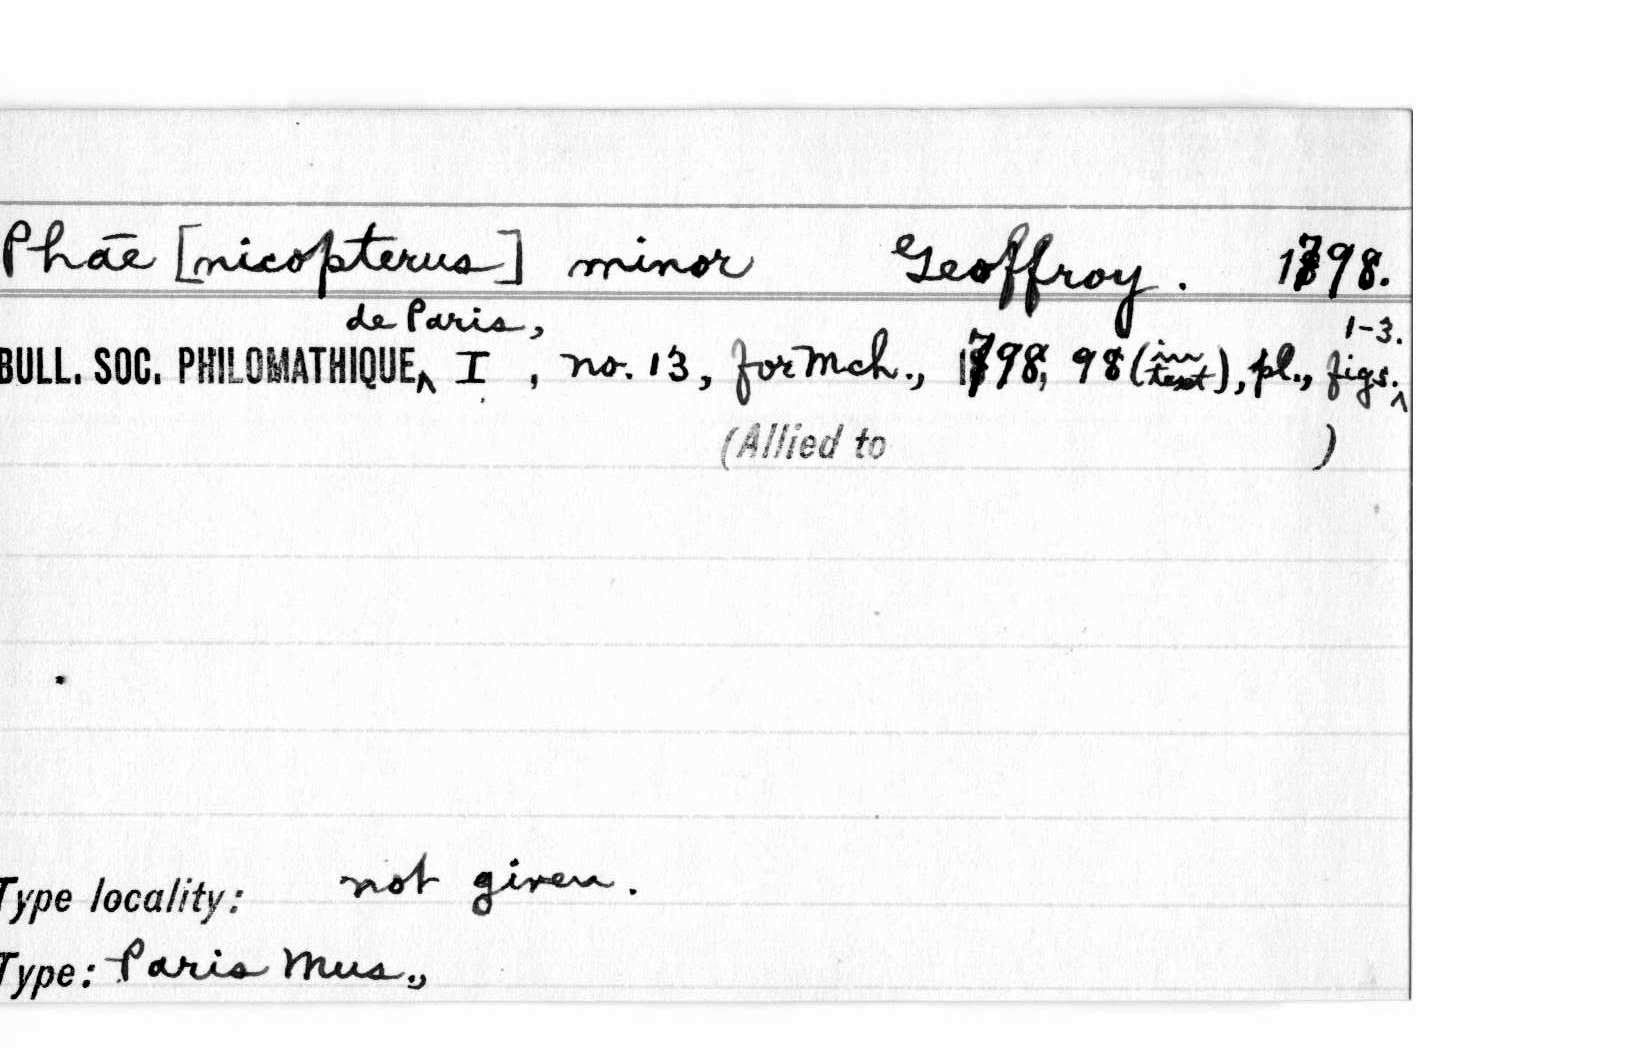 Phāe [nicopterus] minor Geoffroy. 1798.
BULL. SOC. PHILOMATHIQUE de Paris, I, no. 13, for Mch., 1798, 98 (in text), pl., figs. 1-3.
(Allied to )
Type locality: not given.
Type: Paris Mus.,